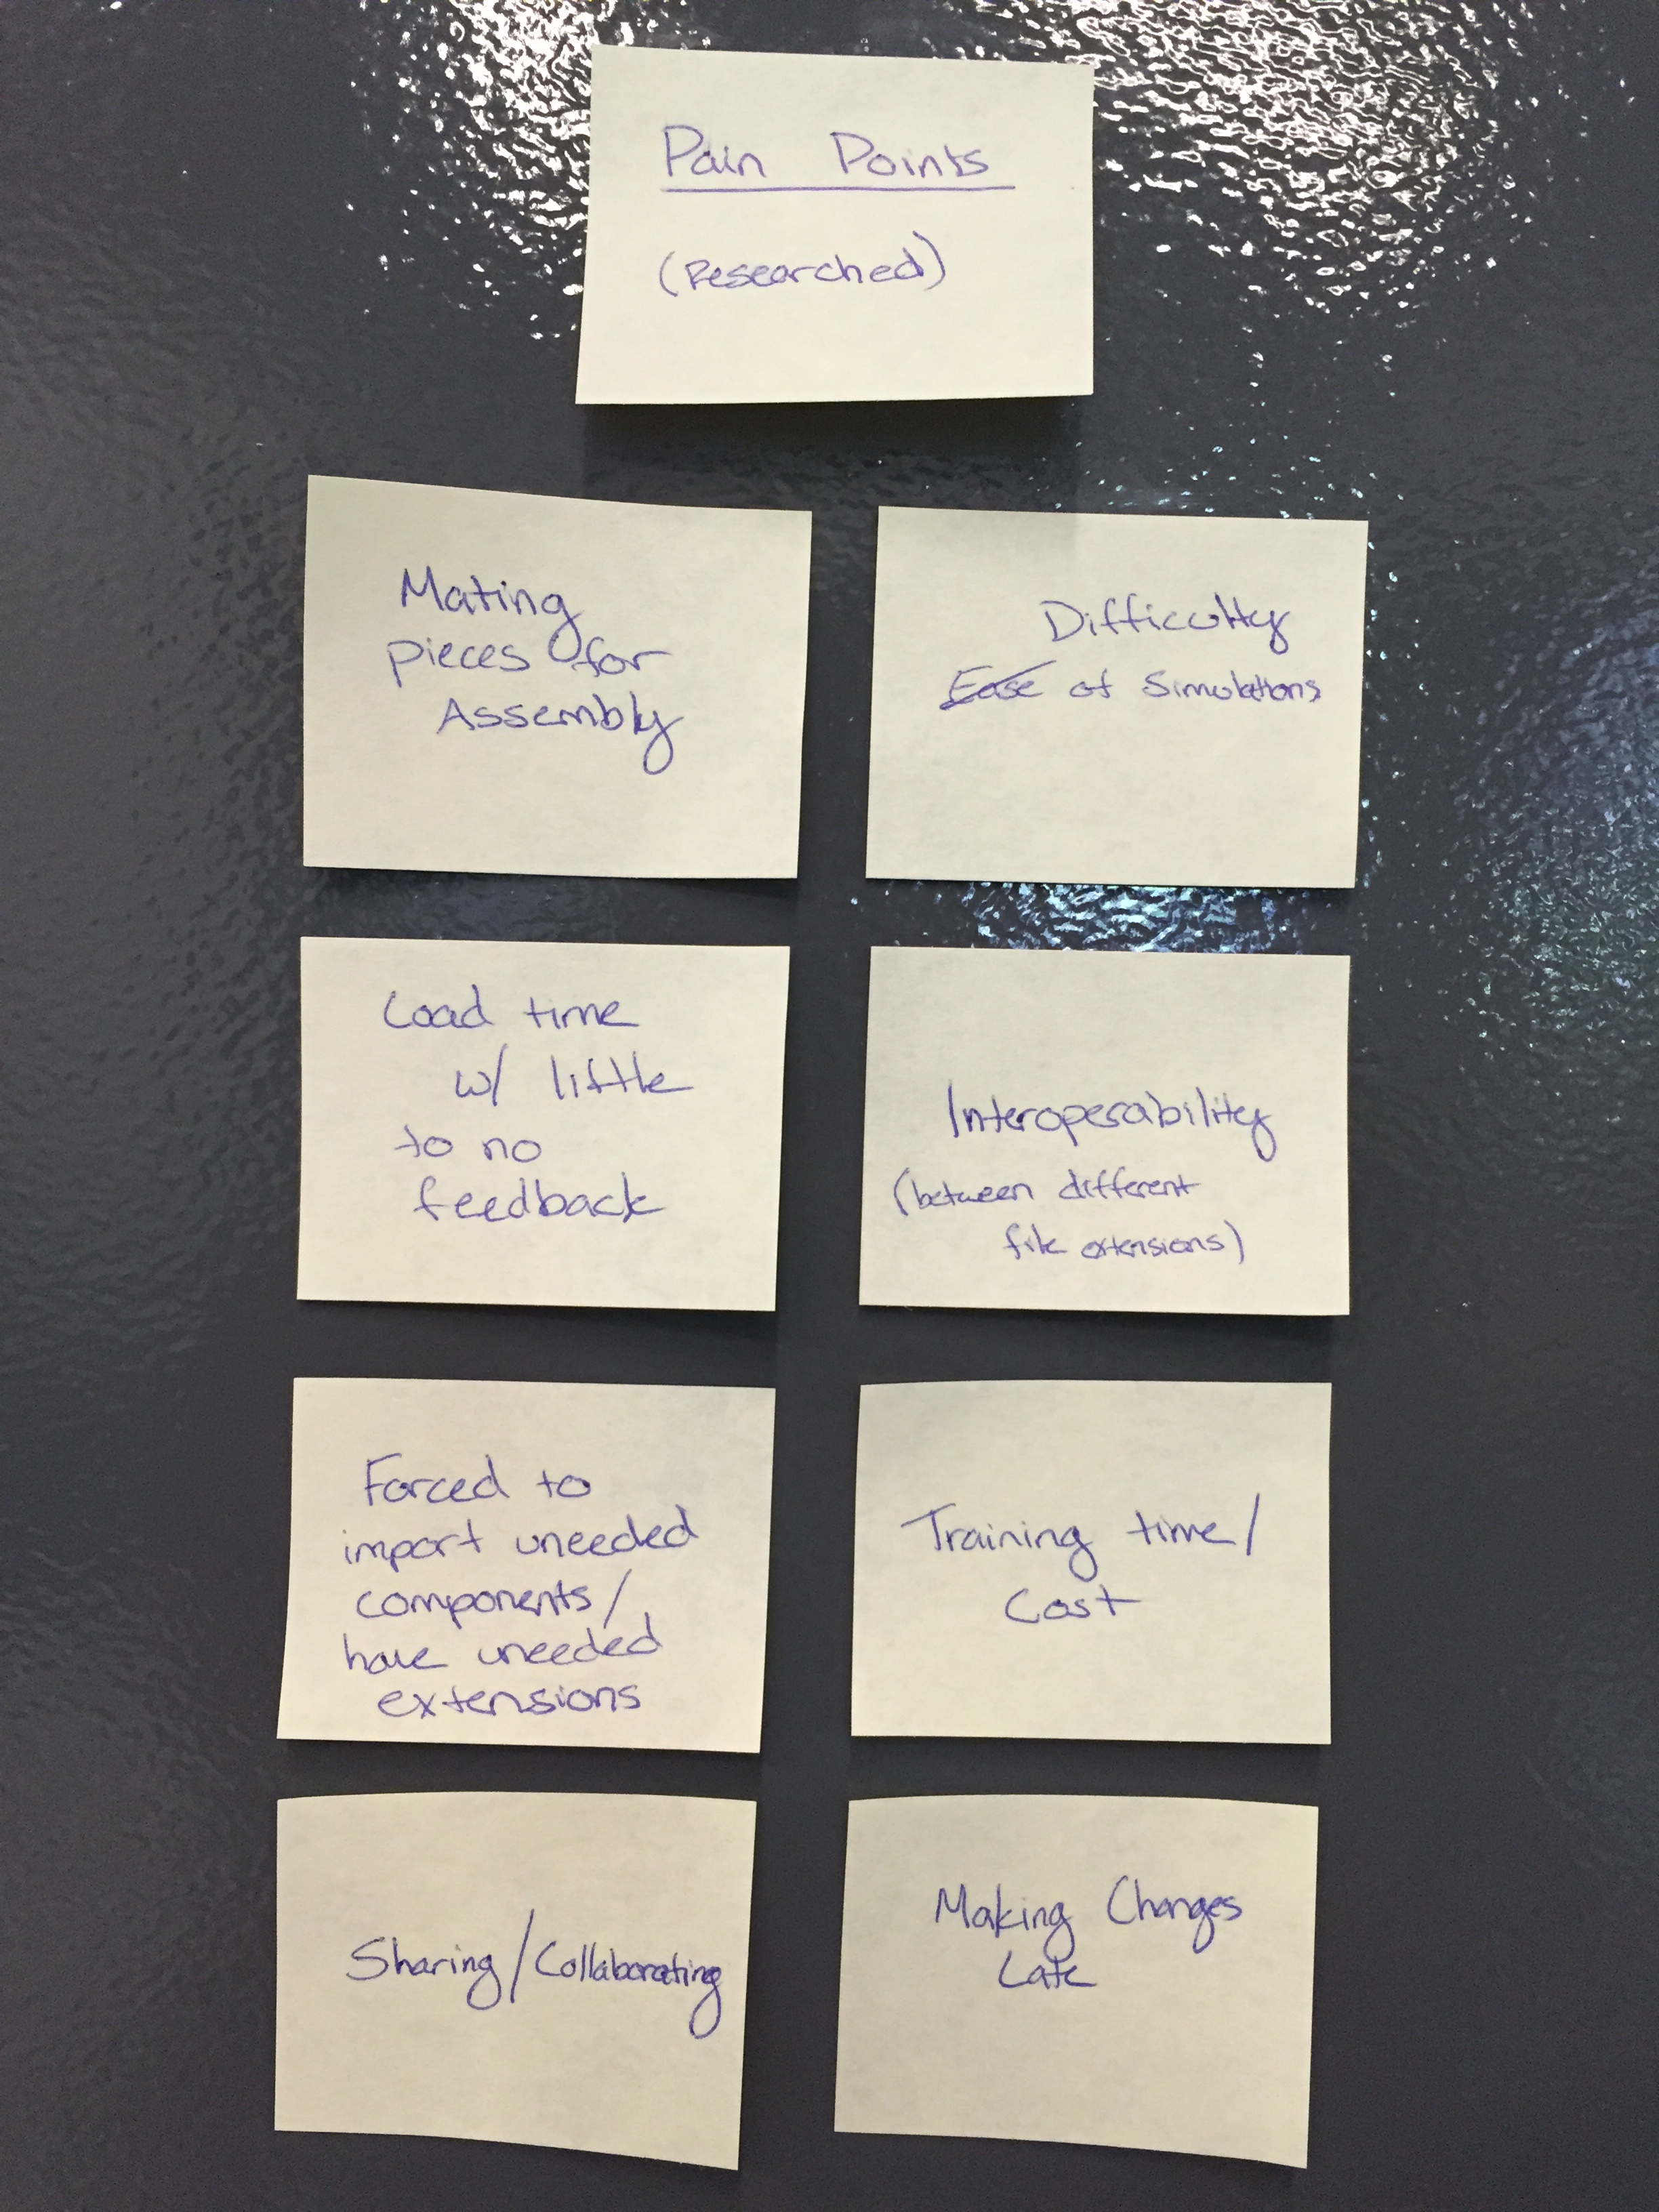 Pain Points
(Researched)
Mating
pieces for
Assembly
Difficulty
Ease of Simulations
Load time
w/ little
to no
feedback
Interoperability
(between different
file extensions)
Forced to
import uneeded
components/
have uneeded
extensions
Training time/
Cost
Sharing/Collaborating
Making Changes
Late